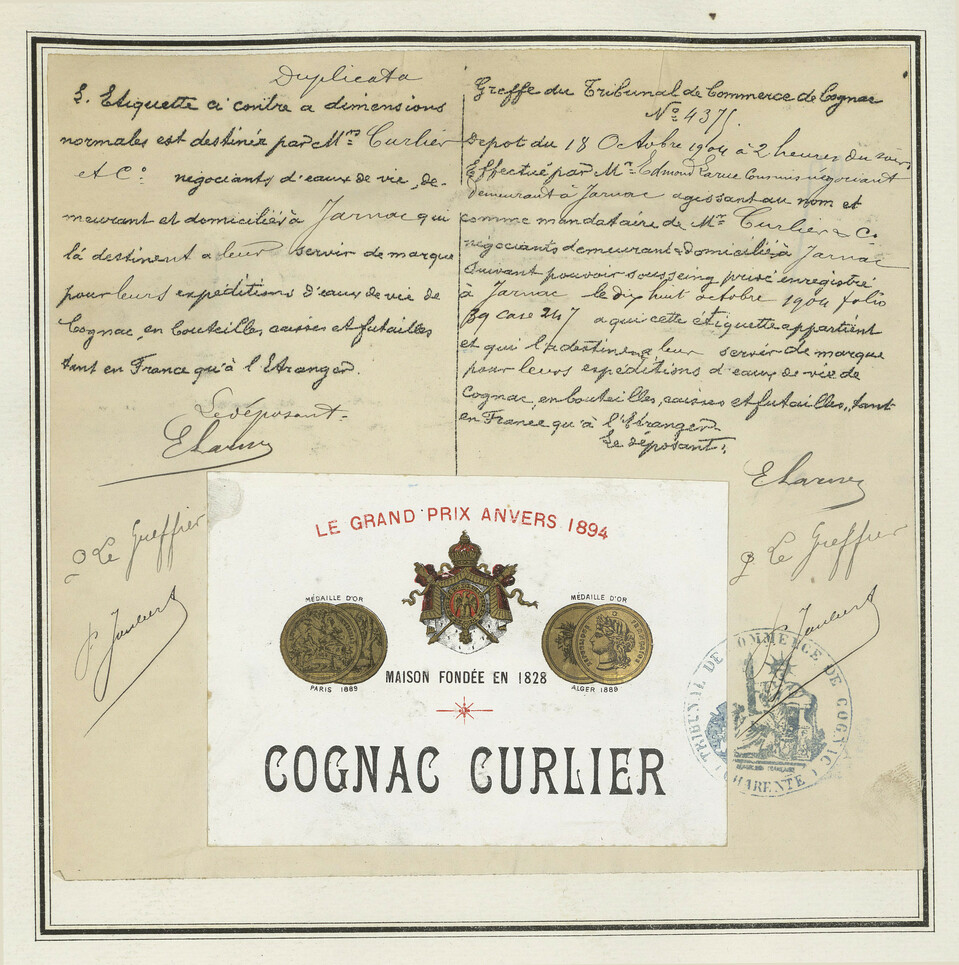 Duplicata
L. Etiquette ci contre a dimensions
normales est destinée par Mrs Curlier
et Co. négociants d'eaux de vie, de-
meurant et domiciliés à Jarnac qui
la destinent a leur servir de marque
pour leurs expéditions d'eaux de vie de
Cognac, en bouteilles, caisses et futailles
tant en France qu'à l'Etranger.
Le déposant.
ELarue
p Le Greffier
Greffe du Tribunal de Commerce de Cognac
No. 4375.
Depot du 18 Octobre 1904 à 2 heures du soir
Effectué par Mr. Edmond Larue Commis négociant
demeurant à Jarnac agissant au nom et
comme mandataire de Mrs Curlier & Co.
négociants demeurant & domiciliés à Jarnac
suivant pouvoir sousseing privé enregistré
à Jarnac le dix huit octobre 1904 folio
39 case 247 a qui cette étiquette appartient
et qui la destinent a leur servir de marque
pour leurs expéditions d'eaux de vie de
Cognac, en bouteilles, caisses et futailles, tant
en France qu'à l'Etranger.
Le déposant:
ELarue
p Le Greffier
LE GRAND PRIX ANVERS 1894
MÉDAILLE D'OR
PARIS 1889
MÉDAILLE D'OR
ALGER 1889
MAISON FONDÉE EN 1828
COGNAC CURLIER
TRIBUNAL DE COMMERCE DE COGNAC
CHARENTE